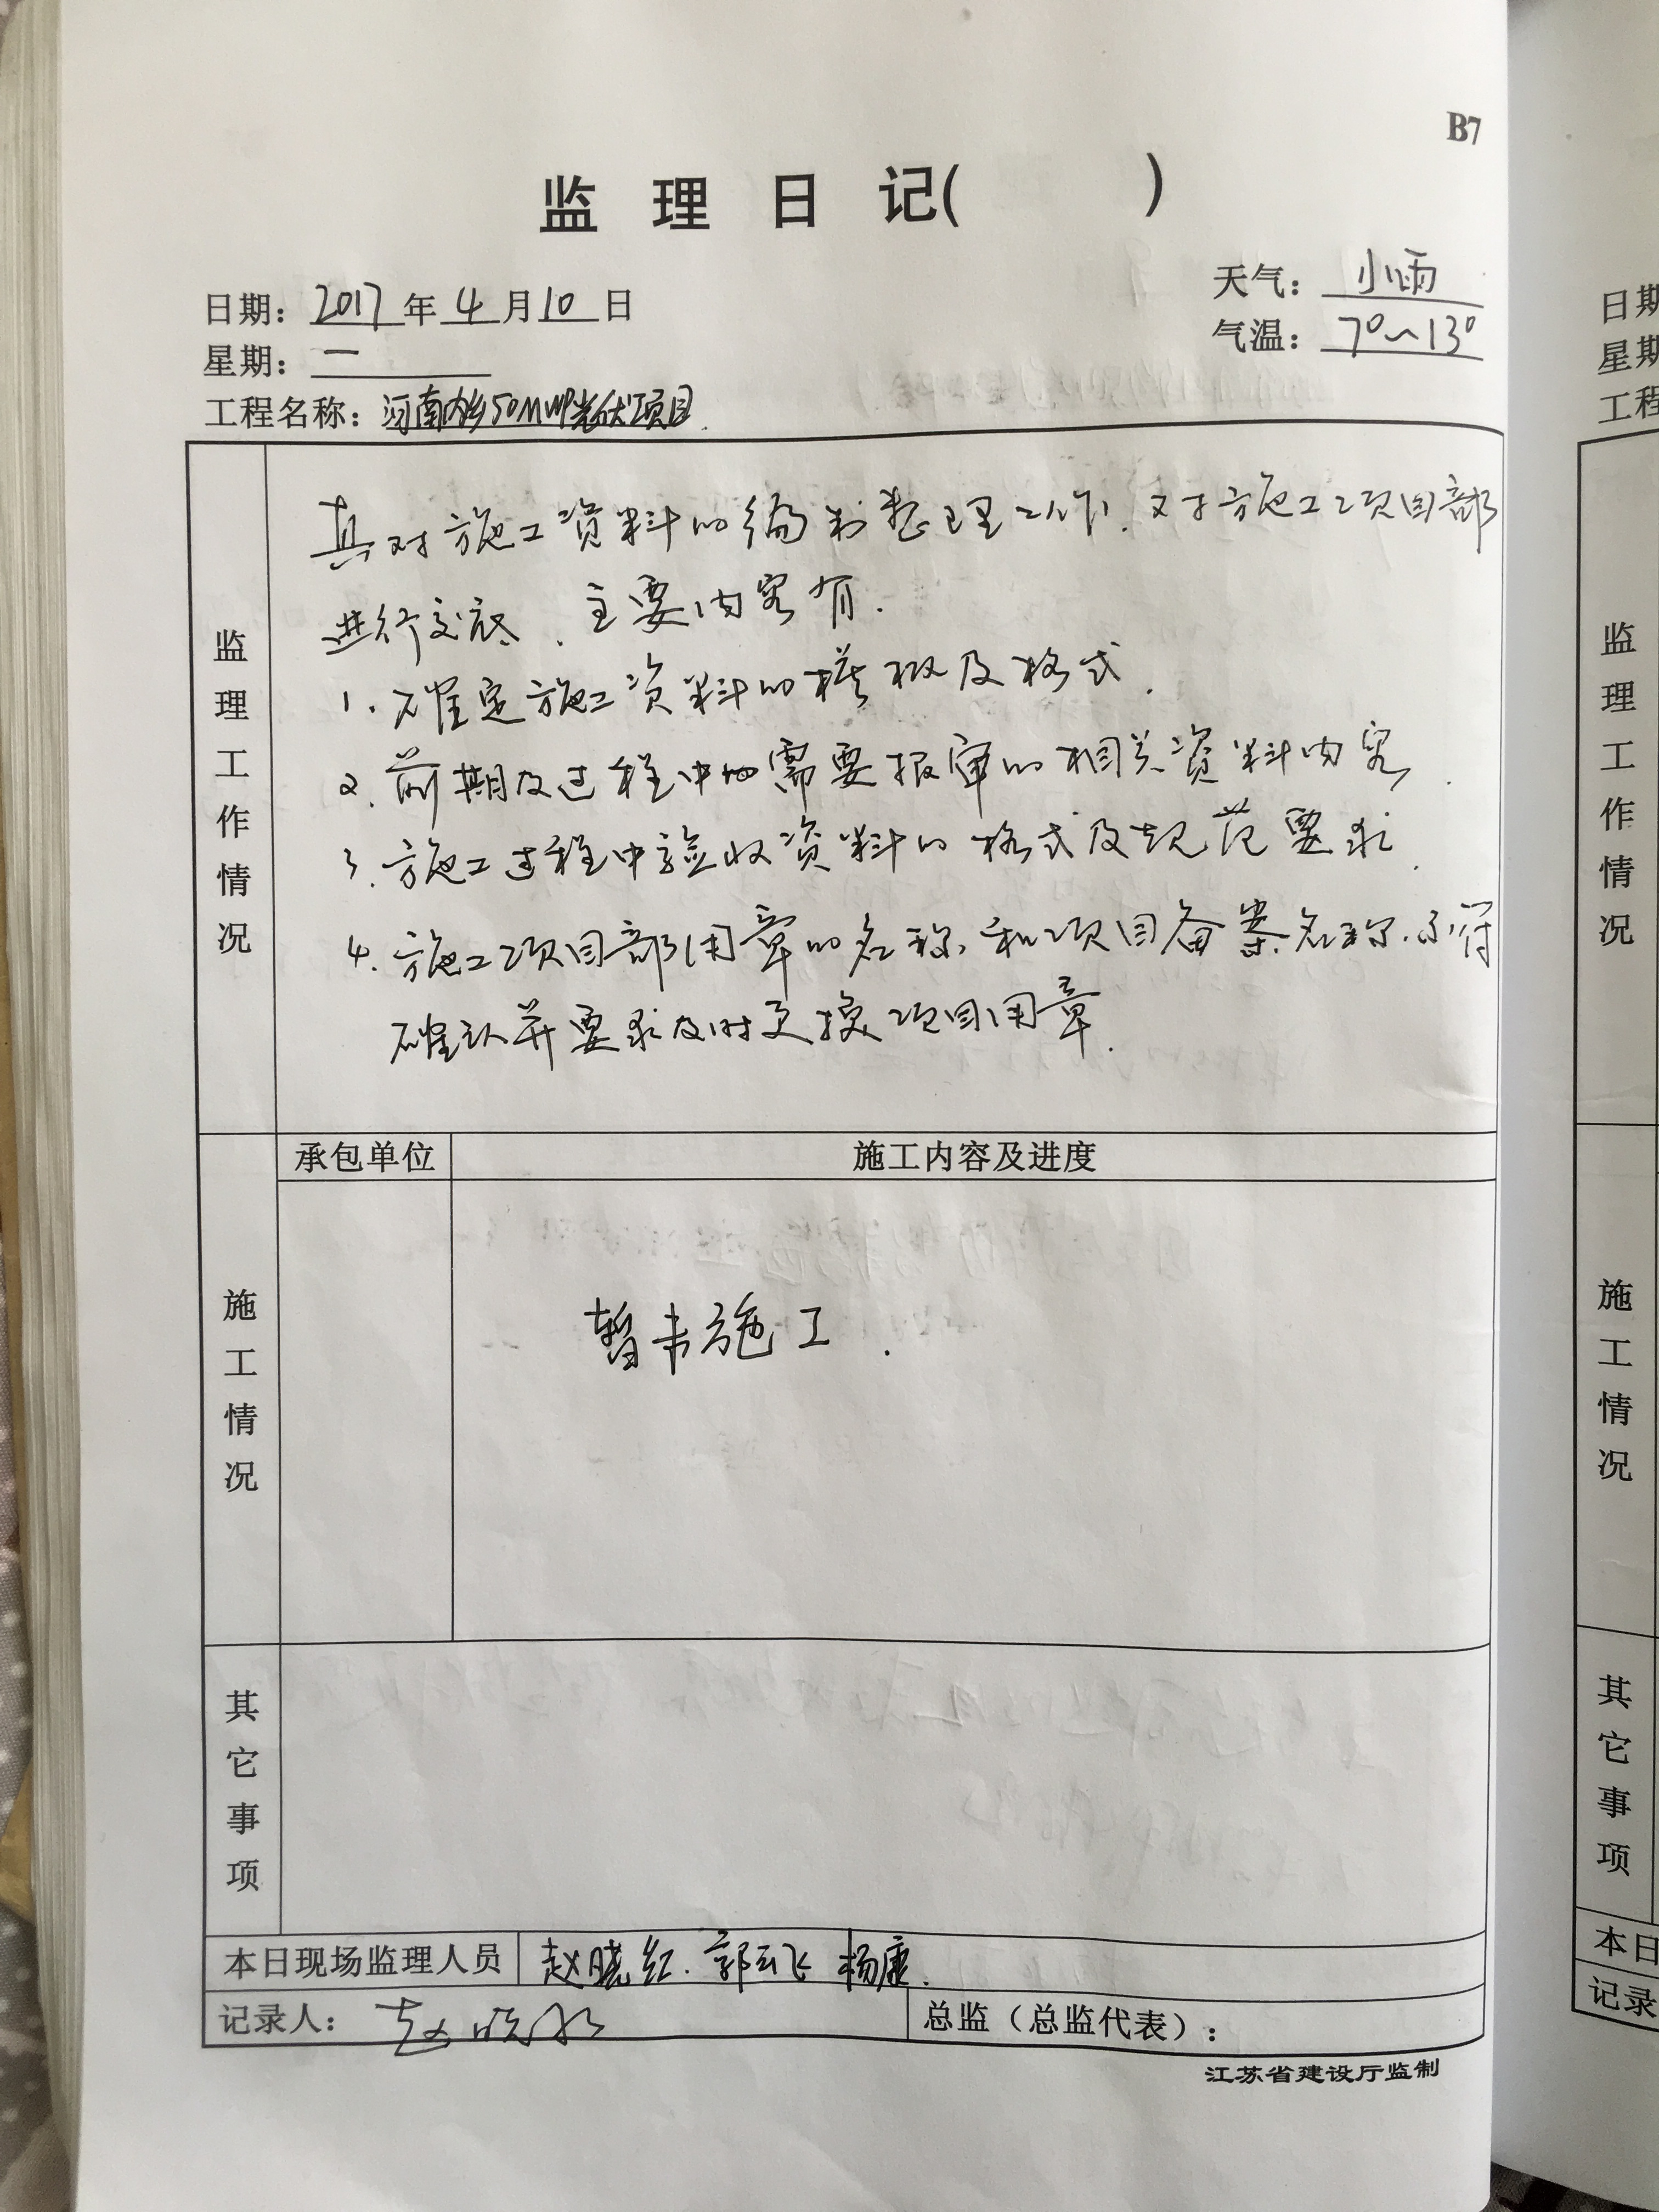 B7
监 理 日 记( )
日期: 2017 年 4 月 10 日
天气: 小雨
星期: 一
气温: 7°~13°
工程名称: 河南内乡50MWP光伏项目.
监理工作情况
其对施工资料的编制整理工作.对于施工项目部
进行交底.主要内容有.
1.确定施工资料的模板及格式.
2.前期及过程中的需要报审的相关资料内容.
3.施工过程中验收资料的格式及规范要求.
4.施工项目部用章的名称和项目备案名称.不符
确认并要求及时更换项目用章.
承包单位
施工内容及进度
施工情况
暂未施工.
其它事项
本日现场监理人员 赵晓红.郭云飞 杨康.
记录人: 赵晓红
总监(总监代表):
江苏省建设厅监制
日期
星期
工程
监理工作情况
施工情况
其它事项
本日
记录